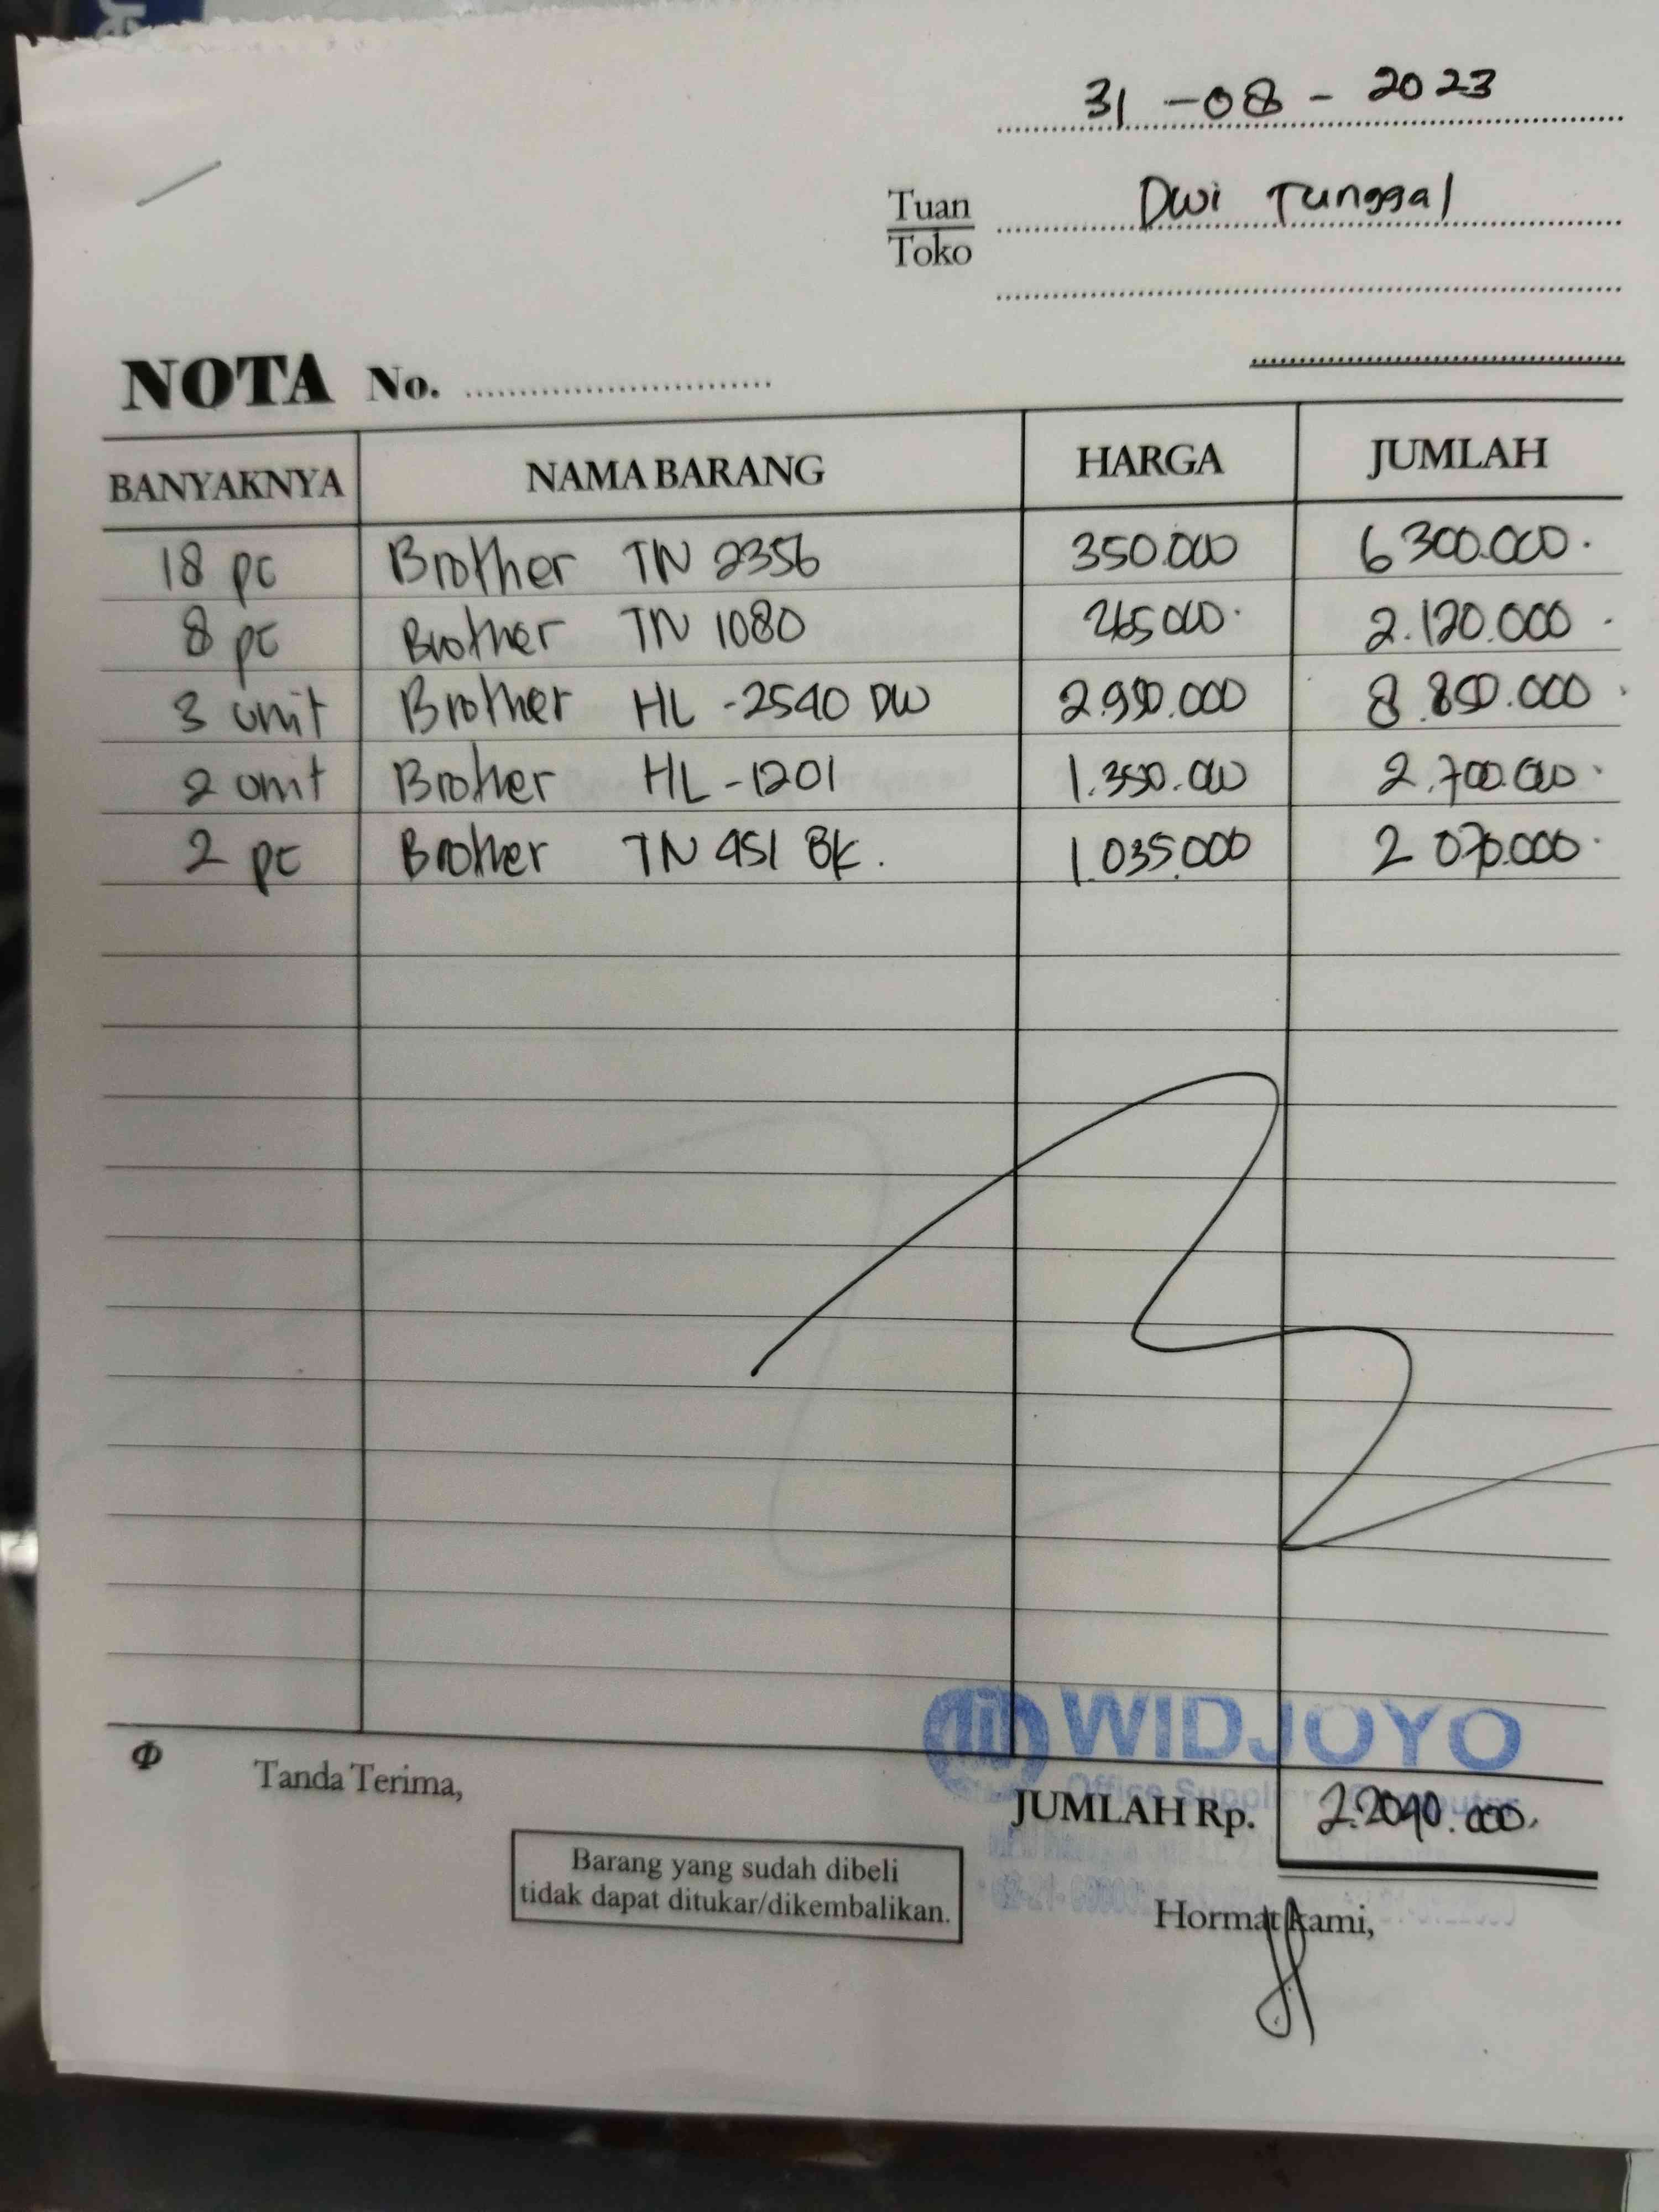 31 -08 - 2023
Tuan
Toko
Dwi Tunggal
NOTA No.
BANYAKNYA NAMA BARANG HARGA JUMLAH
18 pc Brother TN 2356 350.000 6 300.000.
8 pc Brother TN 1080 265 000. 2.120.000.
3 unit Brother HL -2540 DW 2.950.000 8.850.000
2 unit Brother HL -1201 1.350.000 2.700.000.
2 pc Brother TN 451 BK. 1.035.000 2 070.000.
WIDJOYO
Office Supplier
Tanda Terima,
JUMLAH Rp. 2.2040.000.
Barang yang sudah dibeli
tidak dapat ditukar/dikembalikan.
Hormat kami,